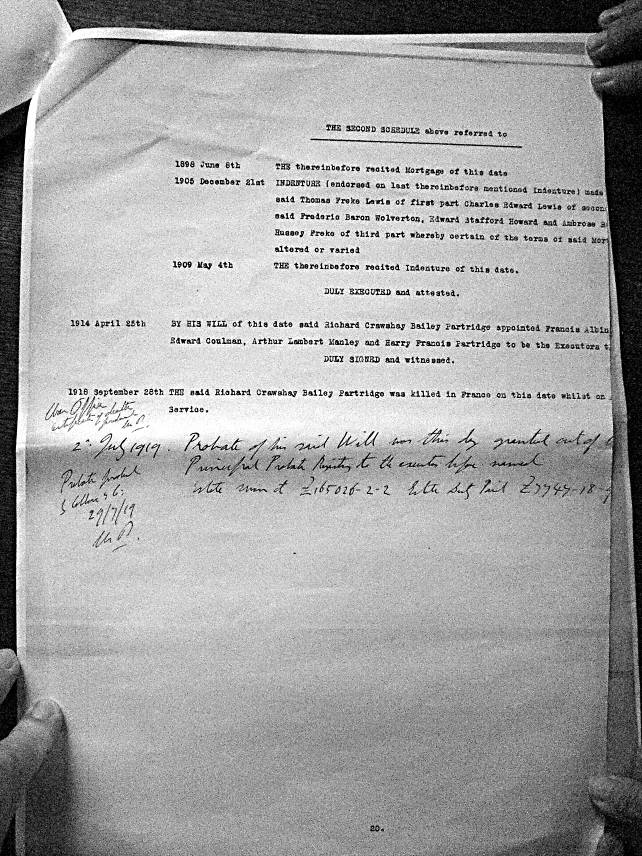 THE SECOND SCHEDULE above referred to
1898 June 8th THE thereinbefore recited Mortgage of this date
1905 December 21st INDENTURE (endorsed on last thereinbefore mentioned Indenture) made
said Thomas Freke Lewis of first part Charles Edward Lewis of secon
said Frederic Baron Wolverton, Edward Stafford Howard and Ambrose
Hussey Freke of third part whereby certain of the terms of said Mor
altered or varied
1909 May 4th THE thereinbefore recited Indenture of this date.
DULY EXECUTED and attested.
1914 April 25th BY HIS WILL of this date said Richard Crawshay Bailey Partridge appointed Francis Albin
Edward Coulman, Arthur Lambert Manley and Harry Francis Partridge to be the Executors t
DULY SIGNED and witnessed.
1918 September 28th THE said Richard Crawshay Bailey Partridge was killed in France on this date whilst on
Service.
War Office
certificate of death
produced
2nd July 1919. Probate of his said Will was this day granted out of
Principal Probate Registry to the executors before named
Probate produced
Estate sworn at £165026-2-2 Estate Duty Paid
29/7/19
20.